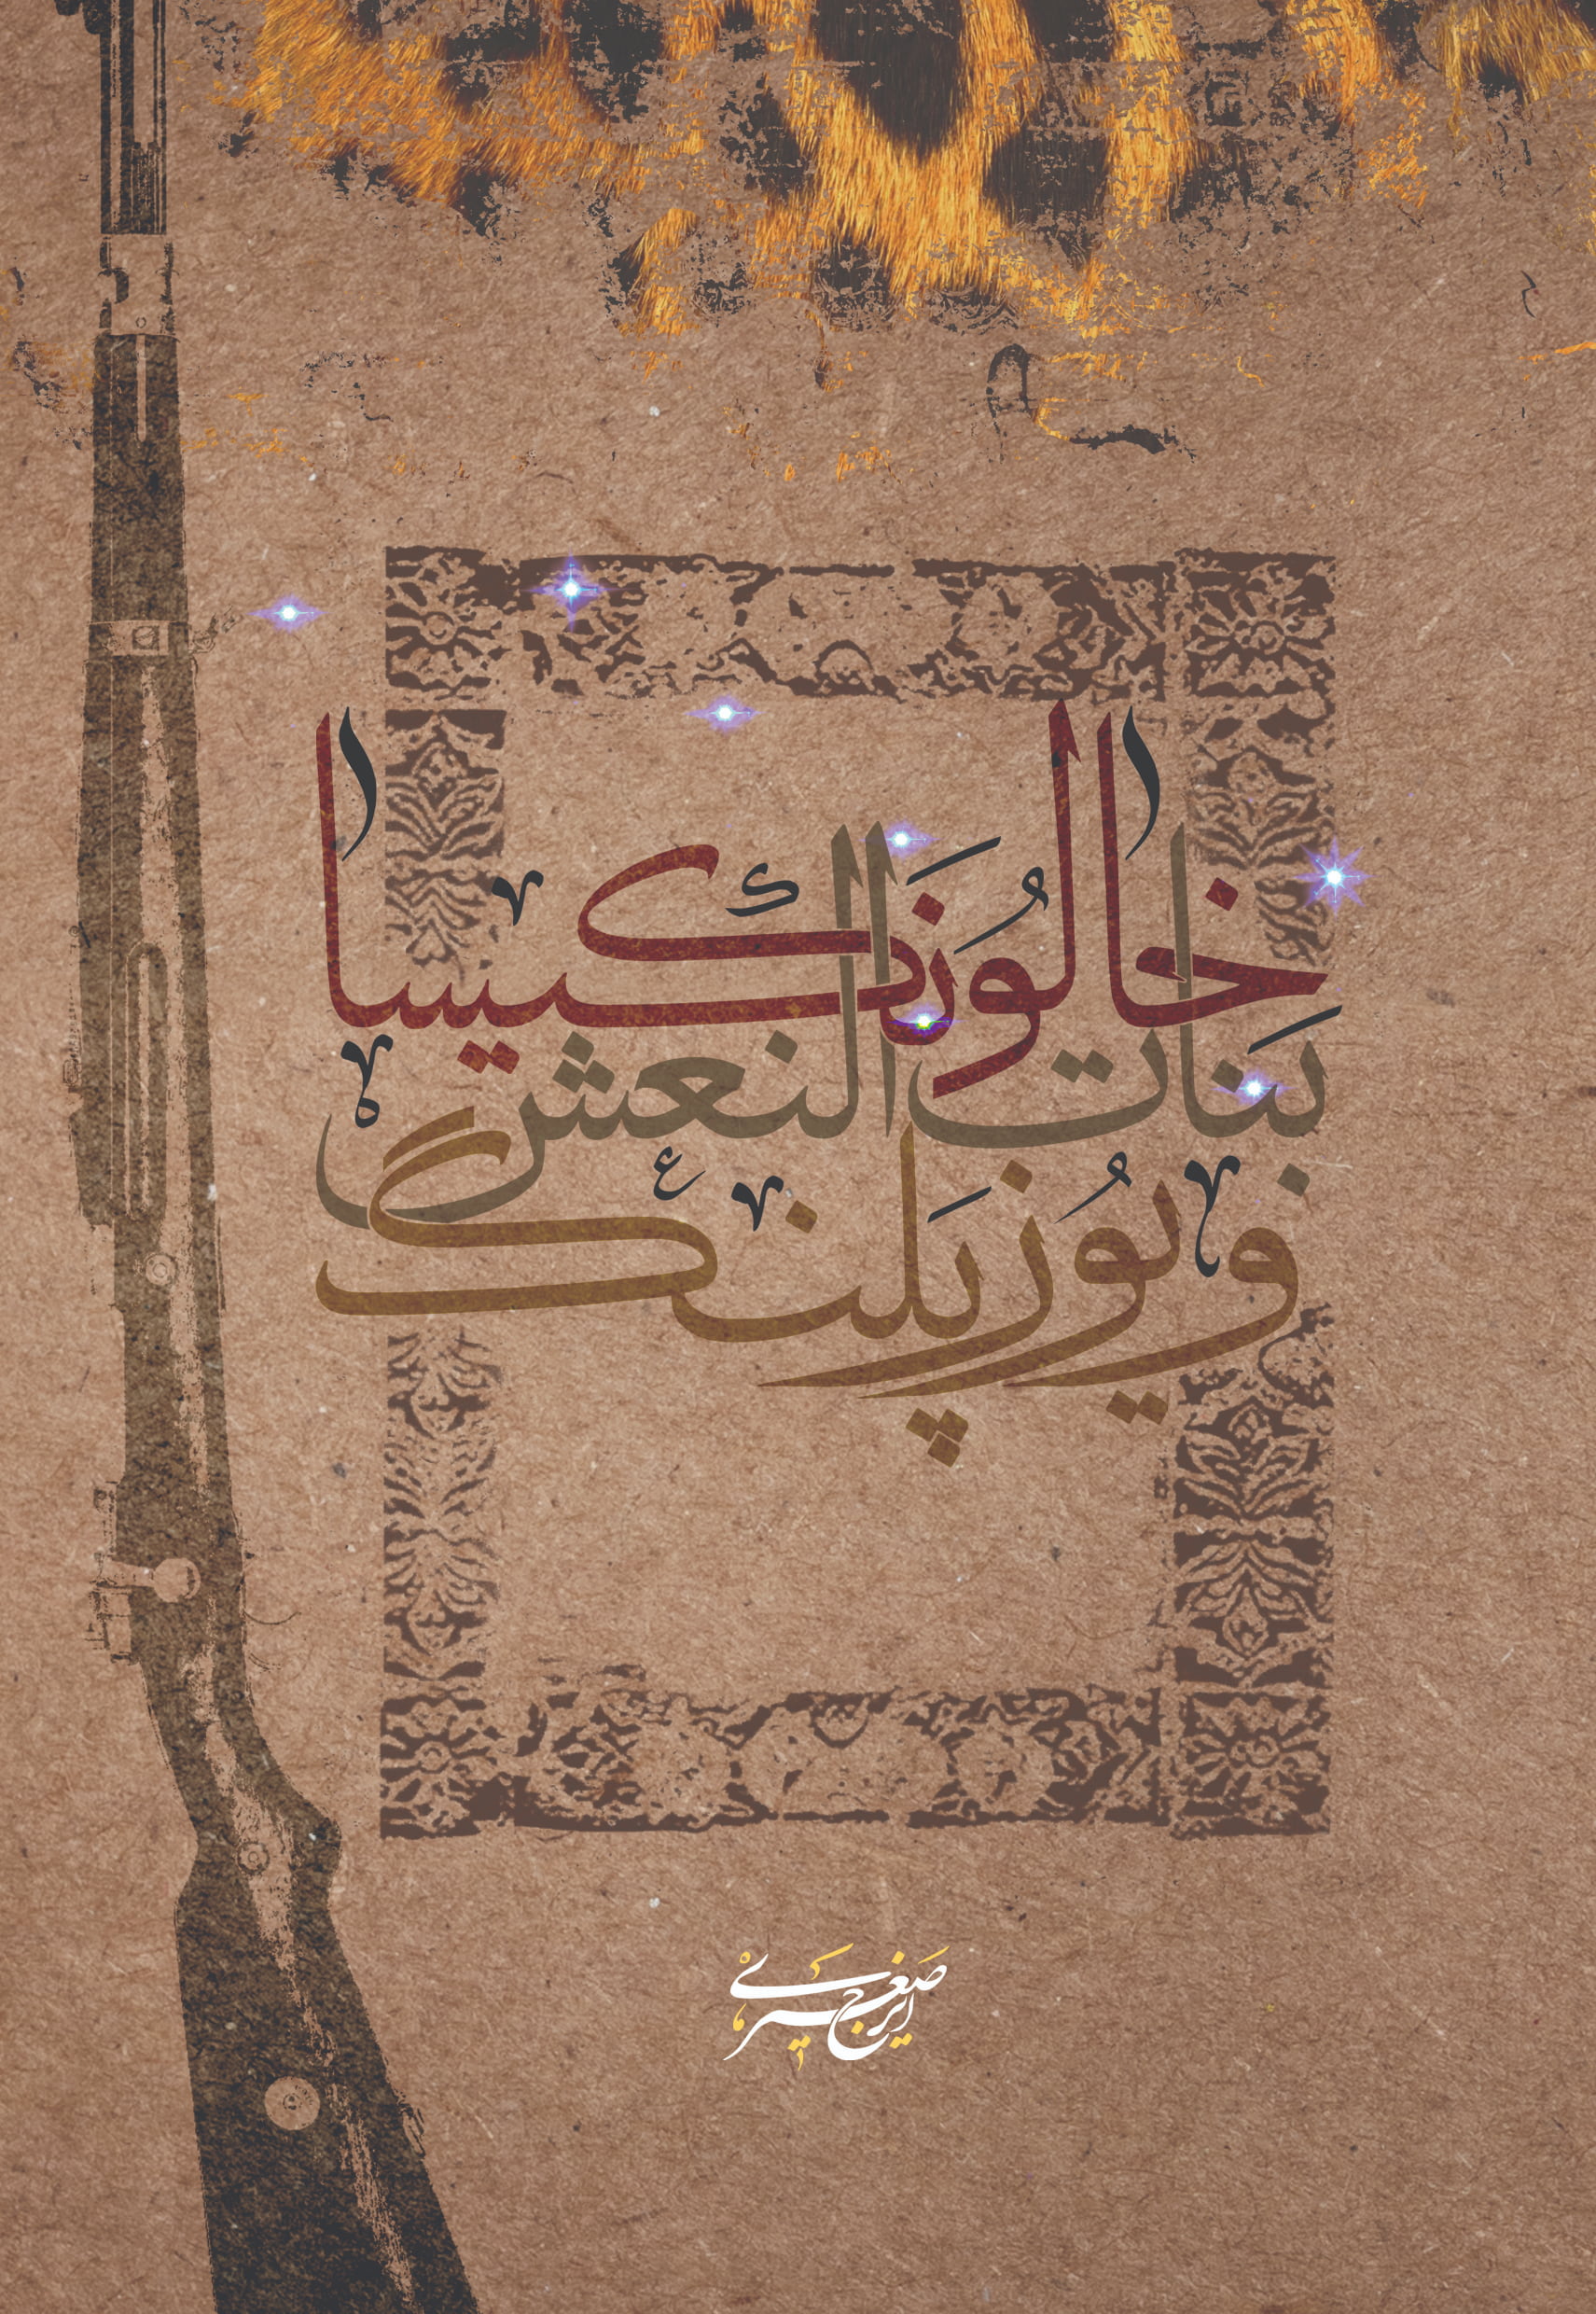 خالونکیسا
بنات النعش
و یوزپلنگ
ایرج صغیری